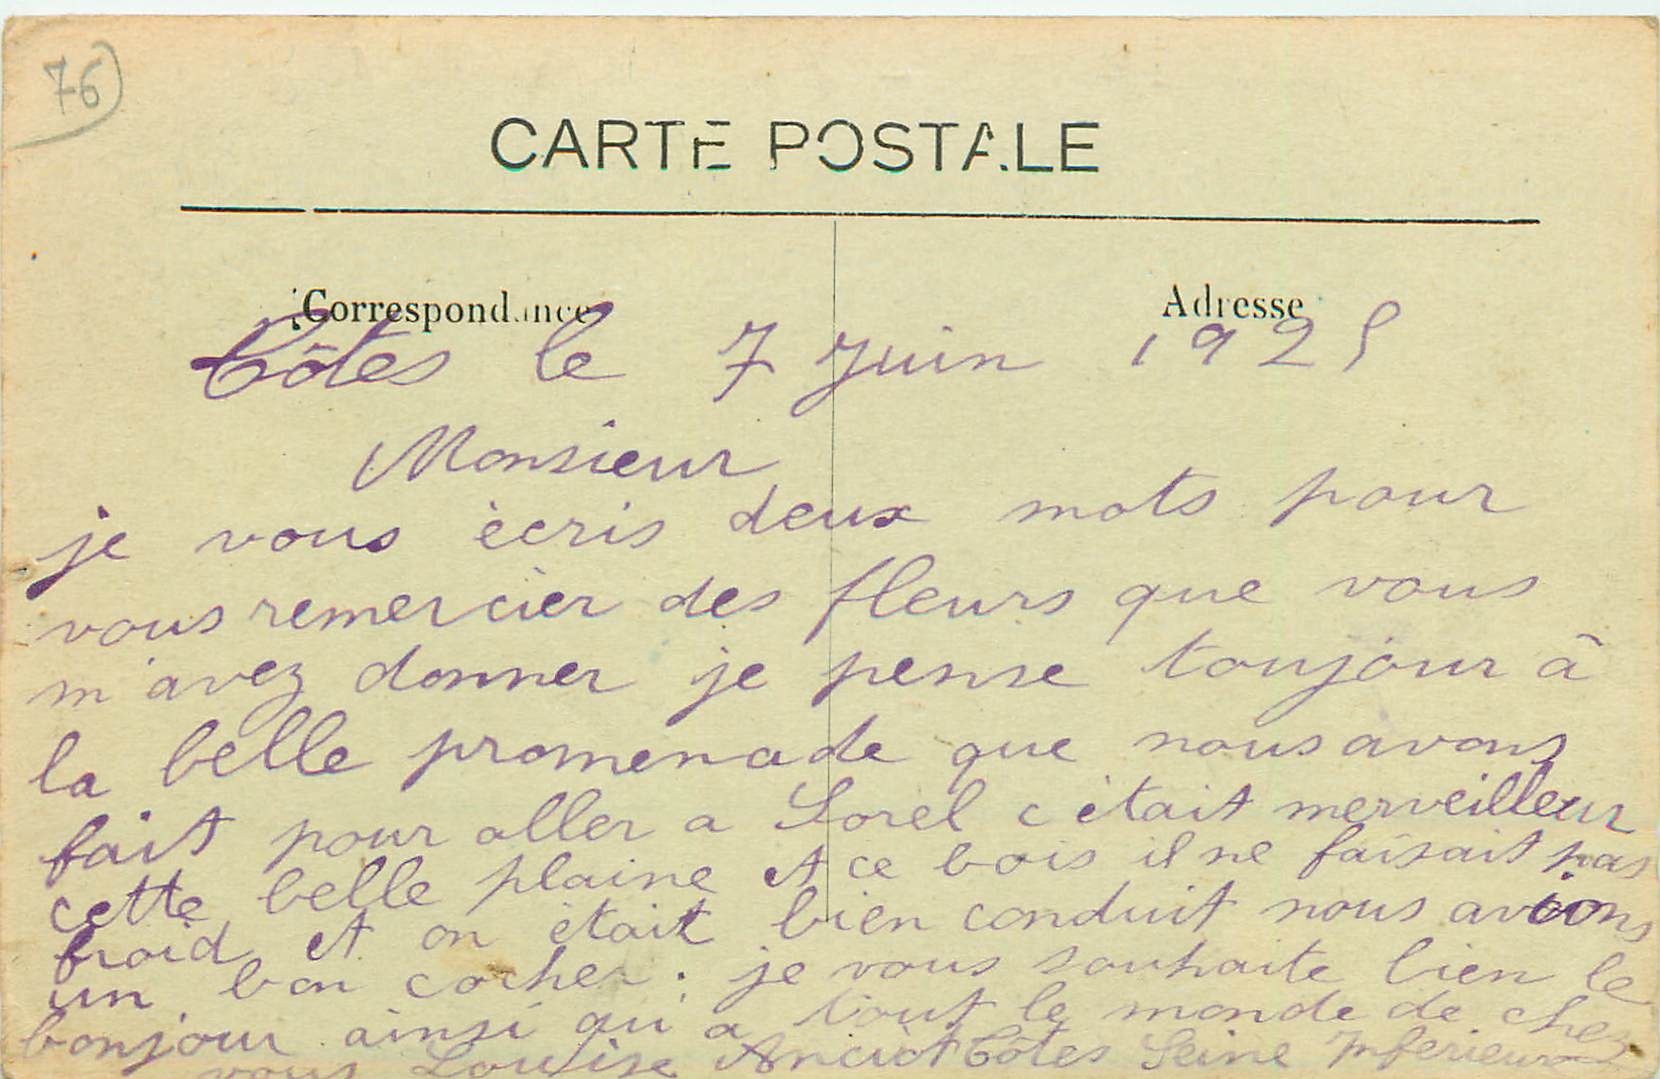 76
CARTE POSTALE
Correspondance
Adresse
Côtes le 7 Juin 1925
Monsieur
je vous écris deux mots pour
vous remercier des fleurs que vous
m'avez donner je pense toujour à
la belle promenade que nous avons
fait pour aller a Sorel c était merveilleur
cette belle plaine et ce bois il ne faisait pas
froid et on était bien conduit nous avions
un bon cocher. je vous souhaite bien le
bonjour ainsi qu'a tout le monde de chez
vous Louise Côtes Seine Inferieure